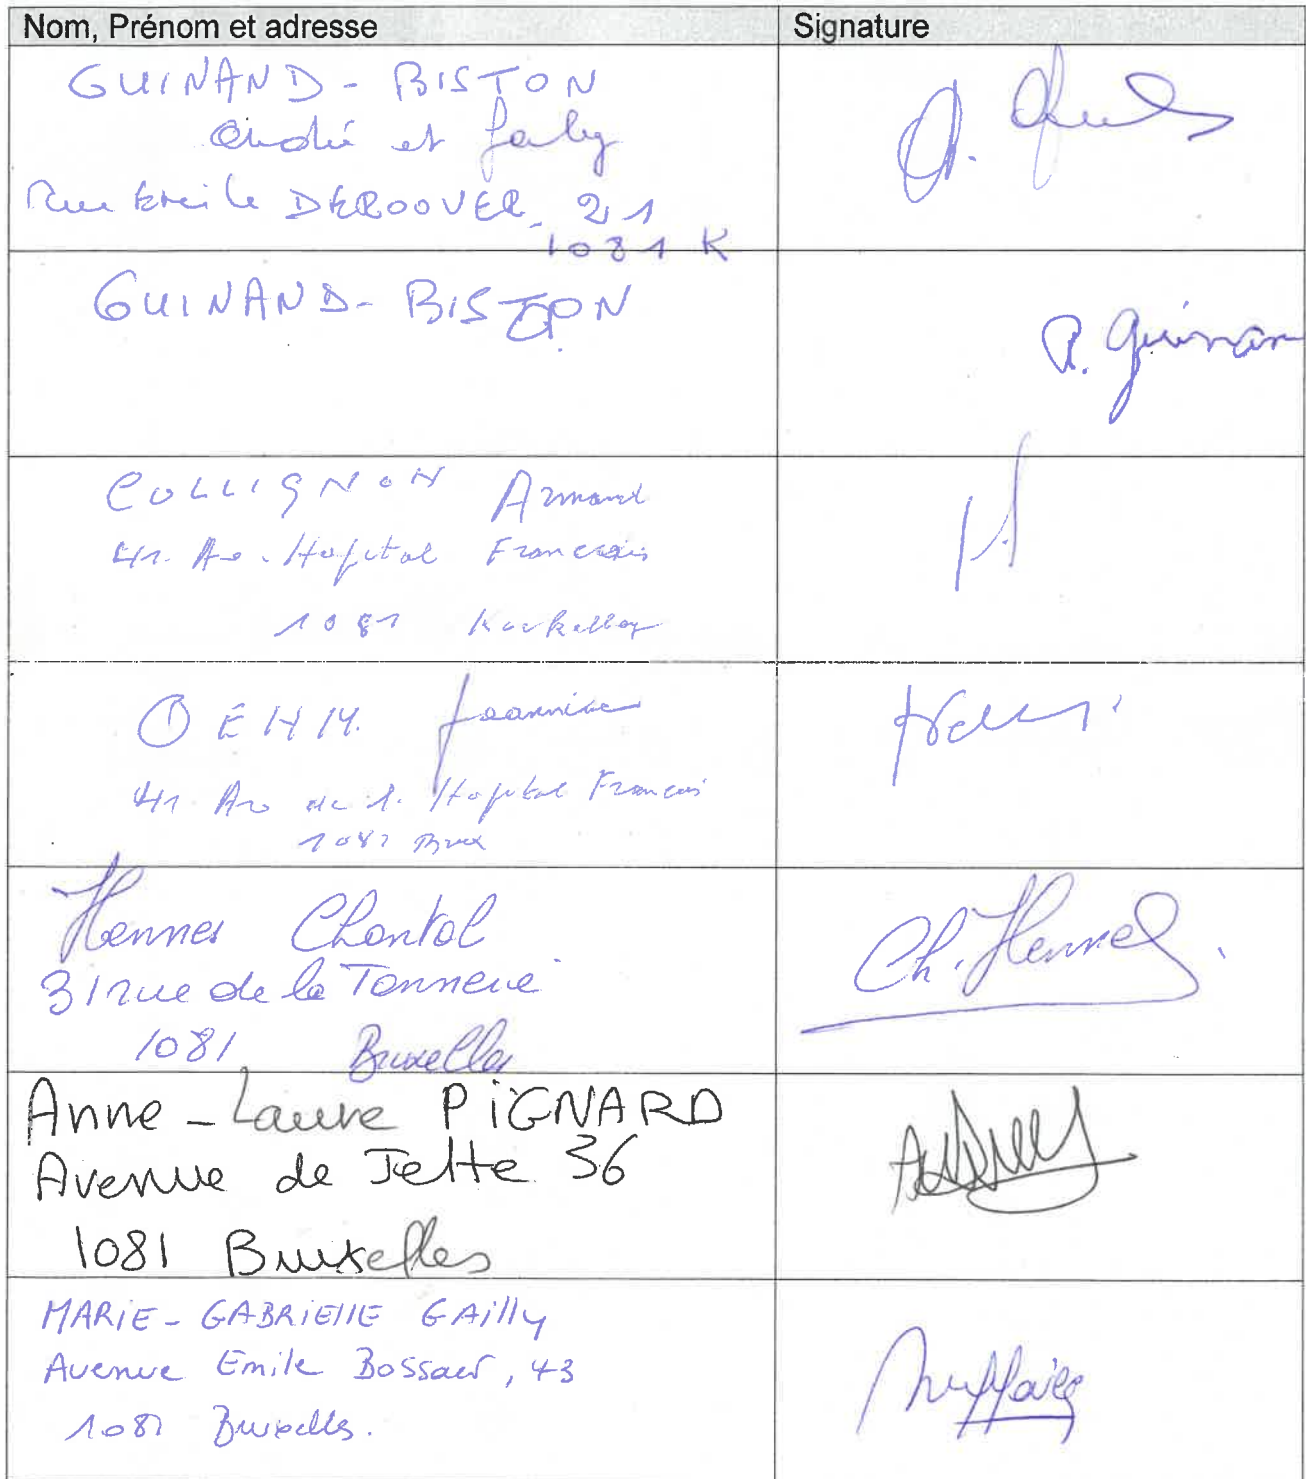 Nom, Prénom et adresse Signature
GUINAND - BISTON
André et
Rue Emile DEROOVER, 21
1081 K
GUINAND - BISTON
P. Guinan
COLLIGNON Armand
41. Av. Hopital Francais
1081
OEHM. Jeannine
41 Av de l. Hopital Francais
1081 Brux
Hennes Chantal
31 rue de la Tonnerie
1081 Bruxelles
Ch. Hennes.
Anne-Laure PiGNARD
Avenue de Jette 36
1081 Bruxelles
MARiE-GABRiElle GAilly
Avenue Emile Bossaer, 43
1081 Bruxelles.